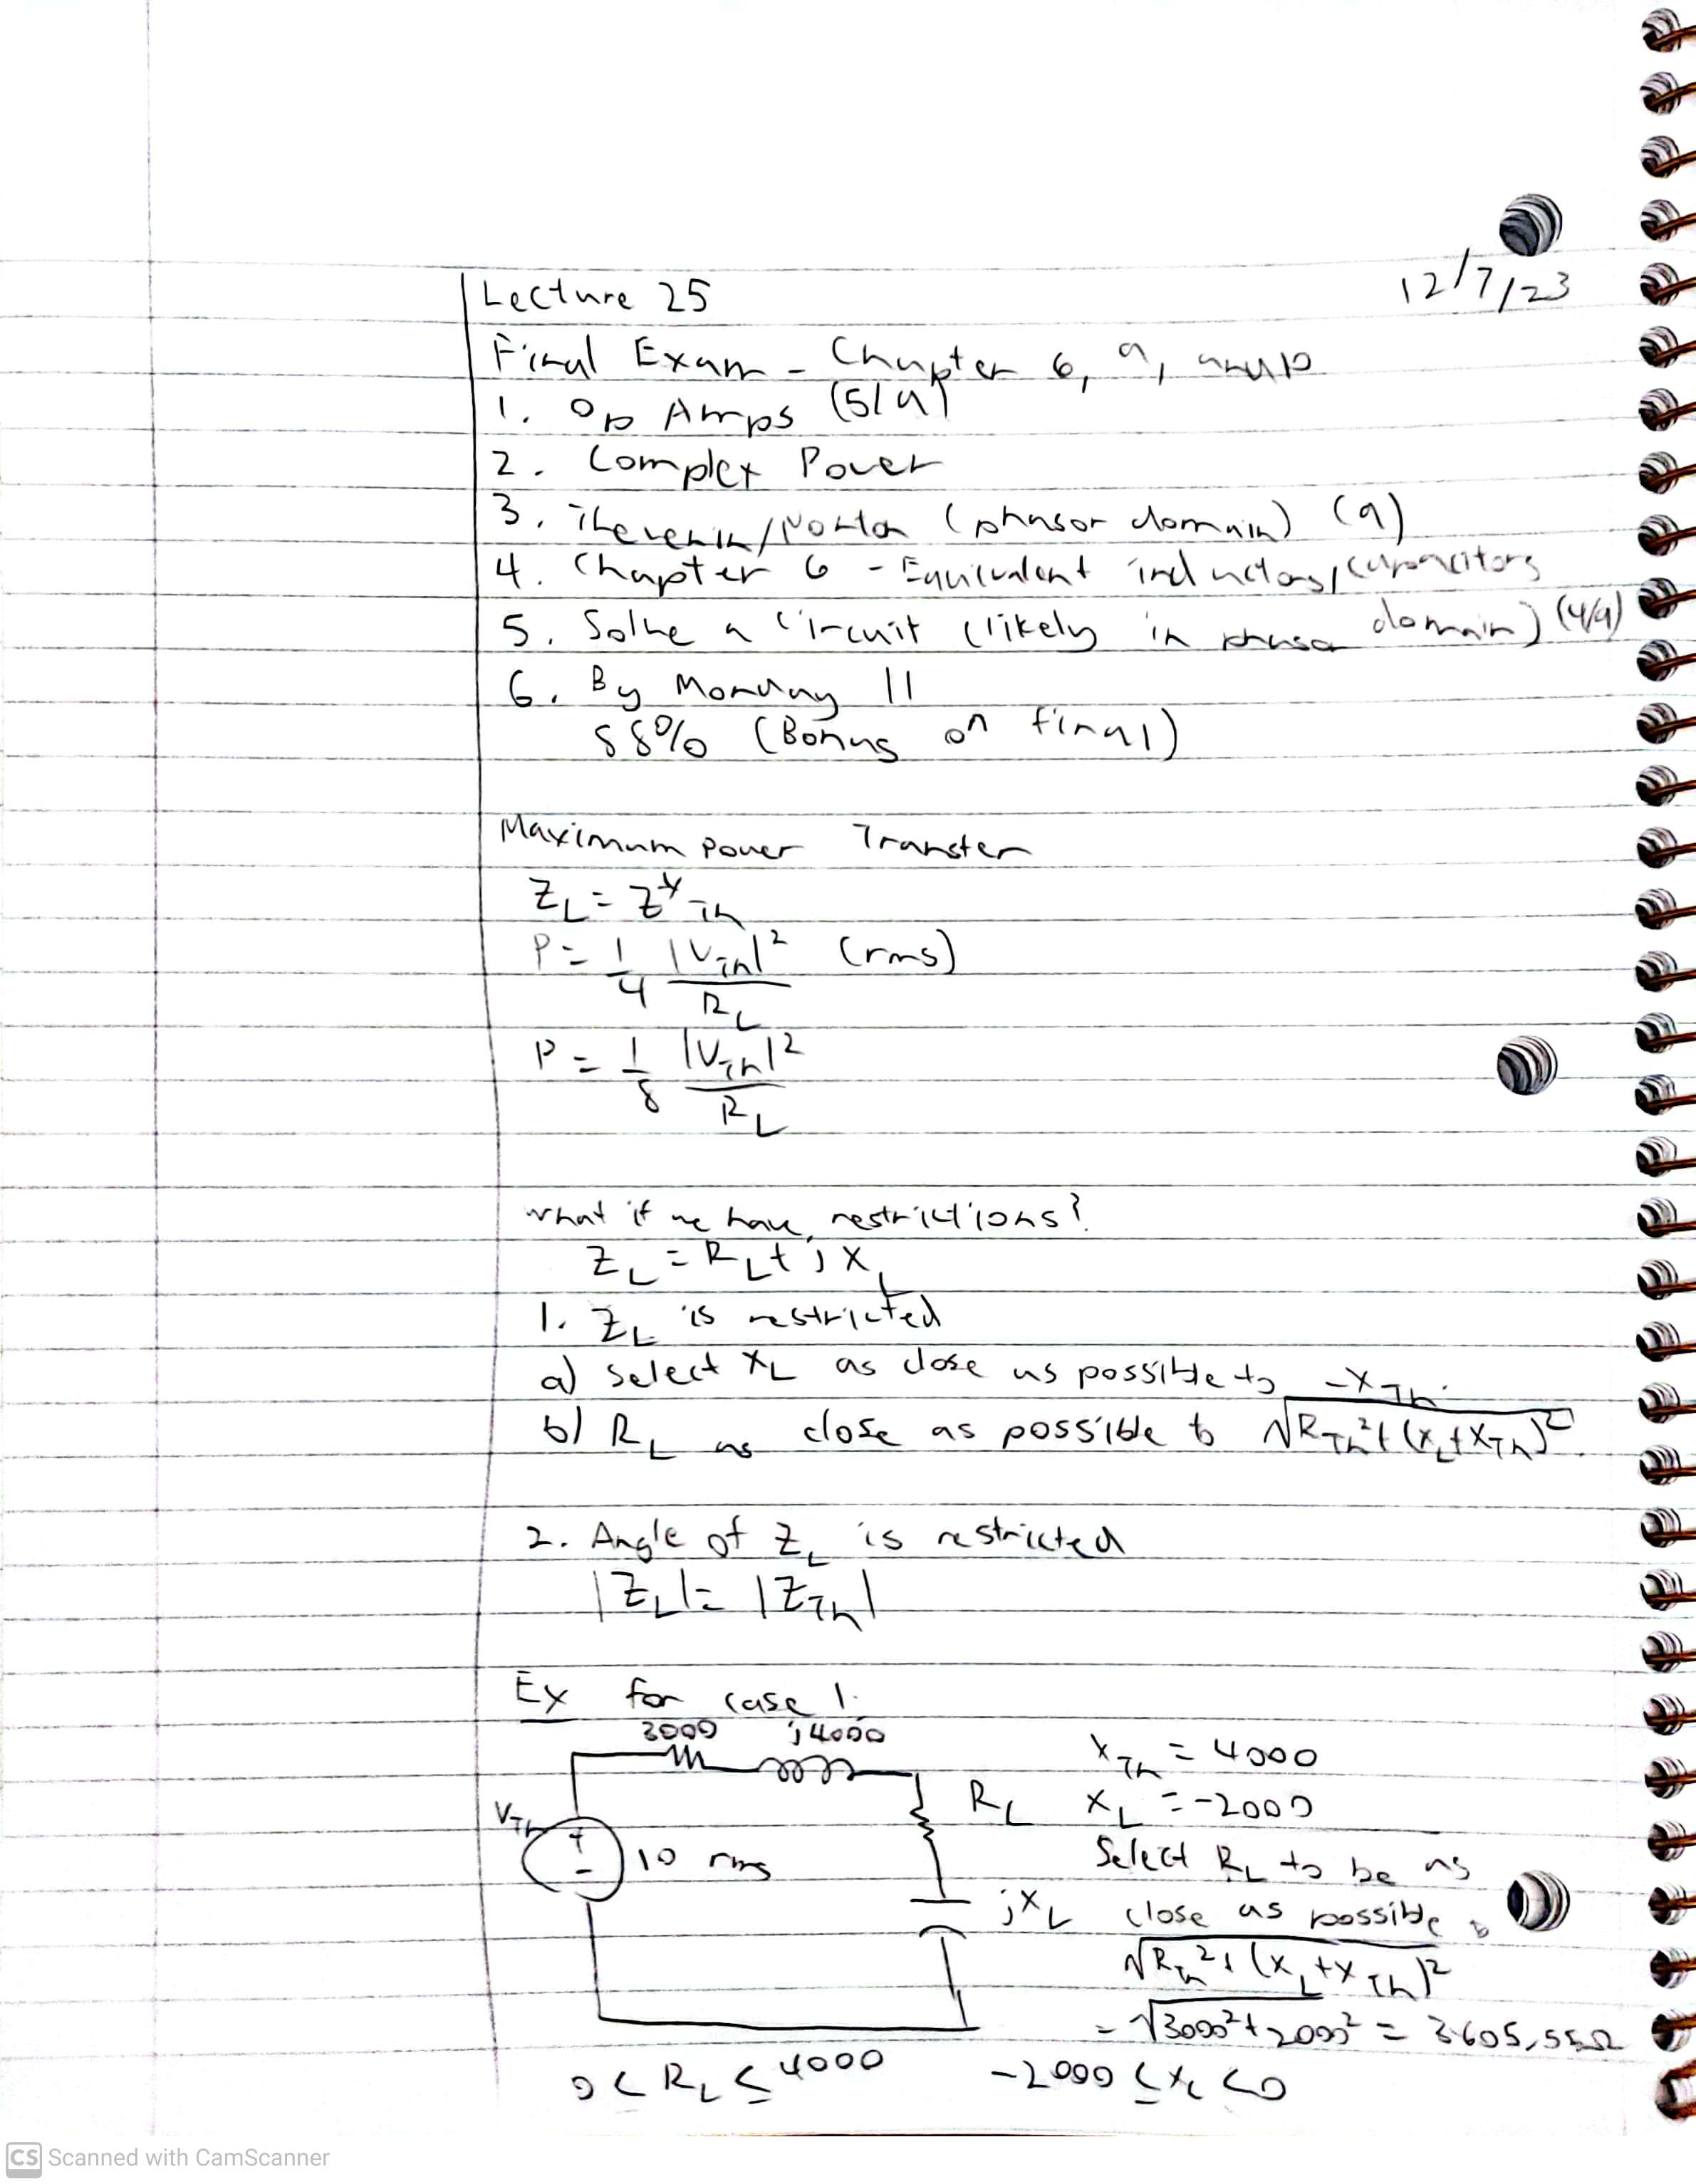 Lecture 25
12/7/23
Final Exam - Chapter 6, 9, and 10
1. Op Amps (5/9)
2. Complex Power
3. Thevenin/Norton (phasor domain) (9)
4. Chapter 6 - Equivalent inductors/capacitors
5. Solve a circuit (likely in phasor domain) (4/9)
6. By Monday 11
88% (Bonus on final)
Maximum power Transfer
Z_L = Z*_Th
P = 1/4 |V_Th|²/R_L (rms)
P = 1/8 |V_Th|²/R_L
what if we have restrictions?
Z_L = R_L + jX_L
1. Z_L is restricted
a) Select X_L as close as possible to -X_Th.
b) R_L as close as possible to √(R_Th² + (X_L + X_Th)²).
2. Angle of Z_L is restricted
|Z_L| = |Z_Th|
Ex for case 1.
3000 j4000
X_Th = 4000
R_L X_L = -2000
V_Th
+
-
10 rms
Select R_L to be as
jX_L close as possible to
√(R_Th² + (X_L + X_Th)²)
= √(3000² + 2000²) = 3605.55Ω
0 < R_L ≤ 4000 -2000 ≤ X_L < 0
CS Scanned with CamScanner